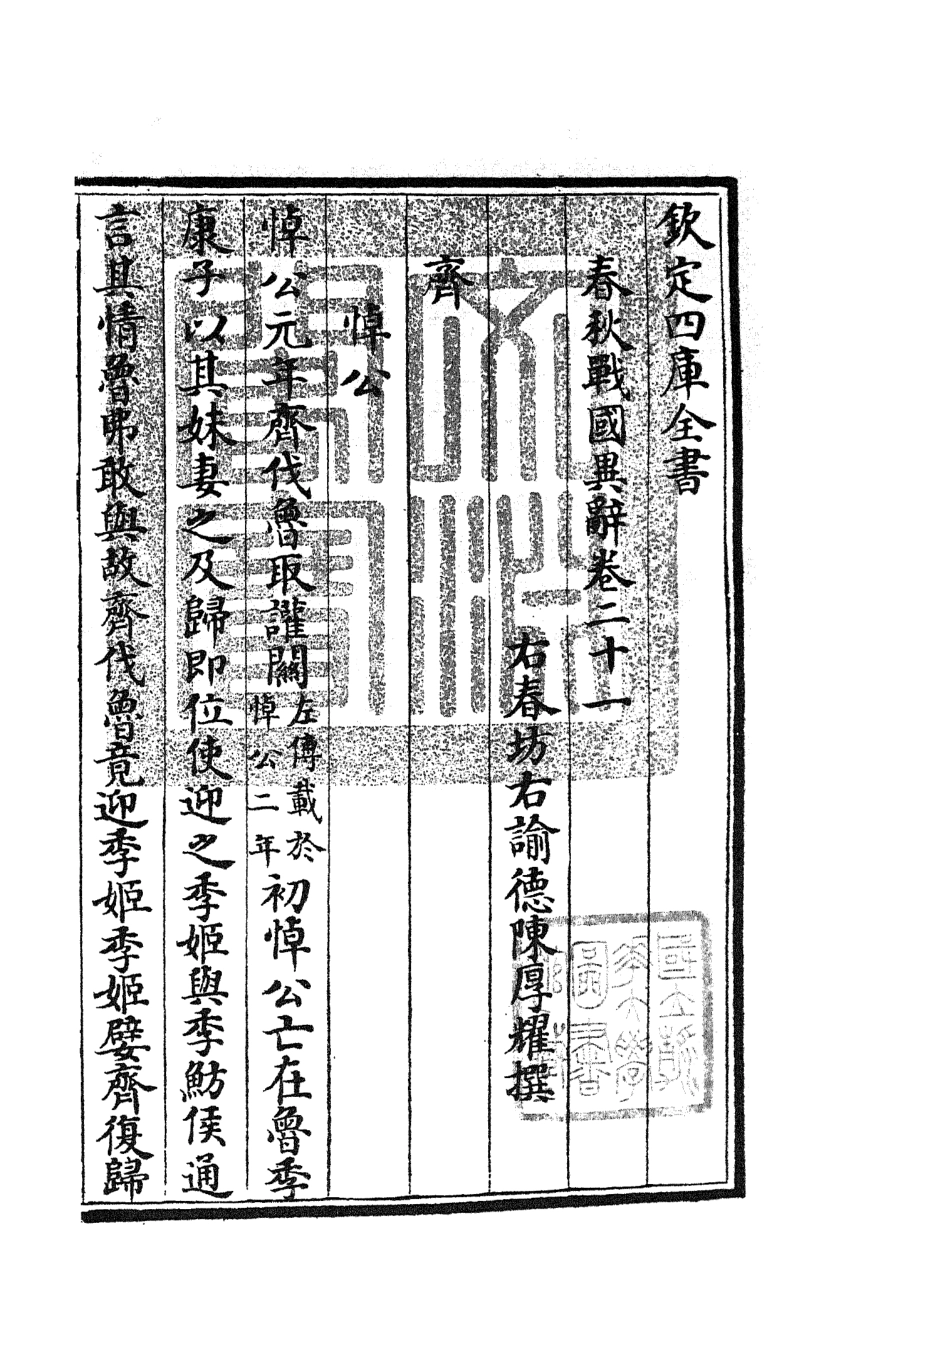 欽定四庫全書
春秋戰國異辭卷二十一
右春坊右諭德陳厚耀撰
齊
悼公
悼公元年齊伐魯取讙闡左傳載於悼公二年初悼公亡在魯季
康子以其妹妻之及歸即位使迎之季姬與季魴侯通
言其情魯弗敢與故齊伐魯竟迎季姬季姬嬖齊復歸